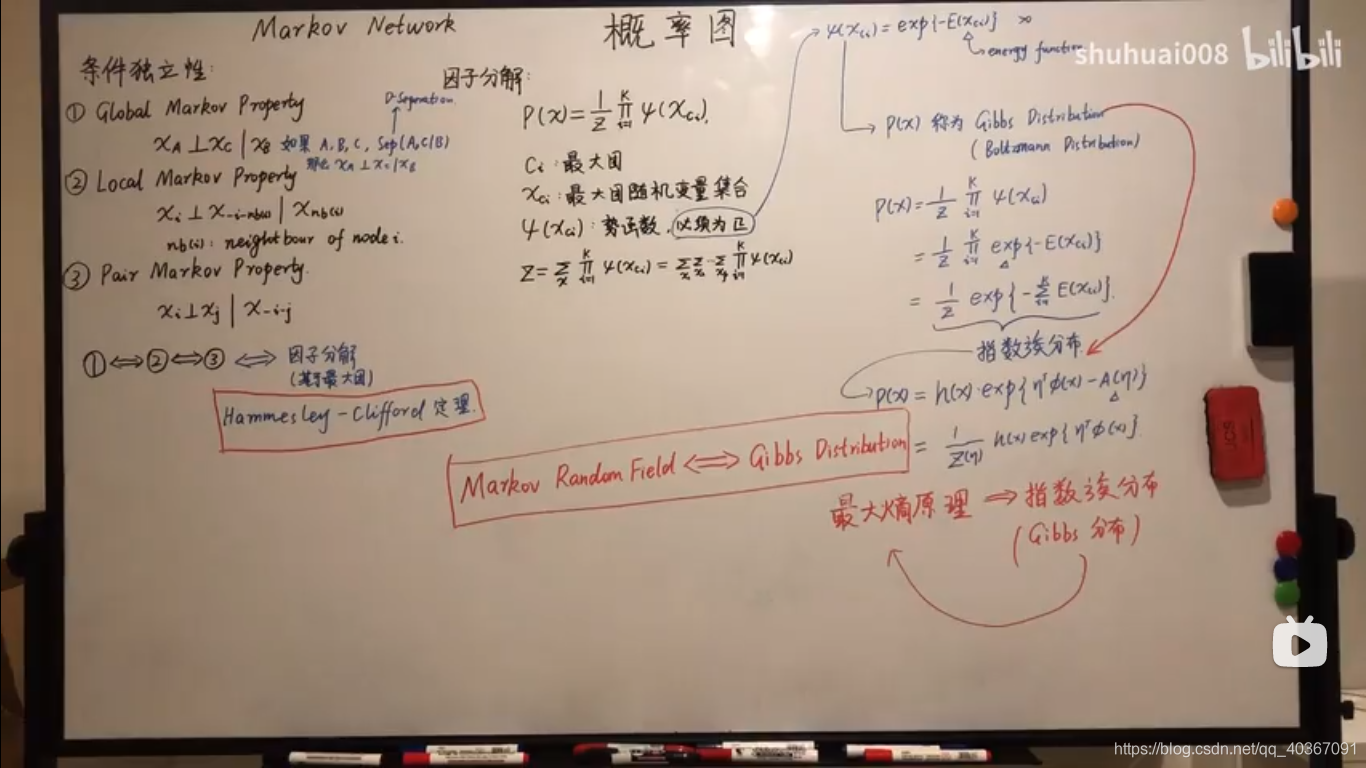 Markov Network
概率图
条件独立性:
① Global Markov Property
D-Seperation
x_A ⊥ x_C | x_B 如果 A, B, C, Sep(A,C|B)
那么 x_A ⊥ x_C | x_B
② Local Markov Property
x_i ⊥ x_{-i-nb(i)} | x_{nb(i)}
nb(i): neightbour of node i.
③ Pair Markov Property.
x_i ⊥ x_j | x_{-i-j}
① ⟺ ② ⟺ ③ ⟺ 因子分解
(基于最大团)
Hammesley-Clifford 定理.
因子分解:
P(x) = 1/Z ∏_{i=1}^K ψ(x_{ci}).
Ci: 最大团
x_{ci}: 最大团随机变量集合
ψ(x_{ci}): 势函数, 必须为正
Z = ∑_x ∏_{i=1}^K ψ(x_{ci}) = ∑_{x_1} ∑_{x_2} … ∑_{x_p} ∏_{i=1}^K ψ(x_{ci})
ψ(x_{ci}) = exp{-E(x_{ci})} >0
energy function
P(x) 称为 Gibbs Distribution
(Boltzmann Distribution)
P(x) = 1/Z ∏_{i=1}^K ψ(x_{ci})
= 1/Z ∏_{i=1}^K exp{-E(x_{ci})}
= 1/Z exp{-∑_{i=1}^K E(x_{ci})}.
指数族分布
P(x) = h(x)·exp{η^T φ(x) - A(η)}
= 1/Z(η) h(x) exp{η^T φ(x)}.
Markov Random Field ⟺ Gibbs Distribution
最大熵原理 ⟹ 指数族分布
(Gibbs 分布)
shuhuai008 bilibili
UCS
https://blog.csdn.net/qq_40367091